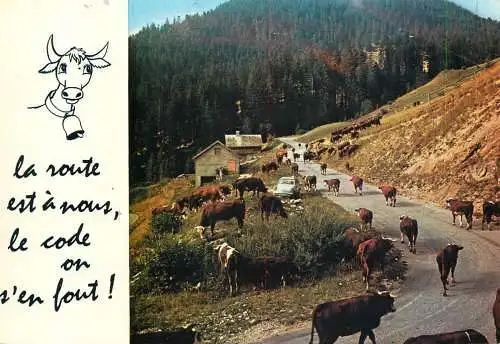 la route
est à nous,
le code
on
s'en fout !